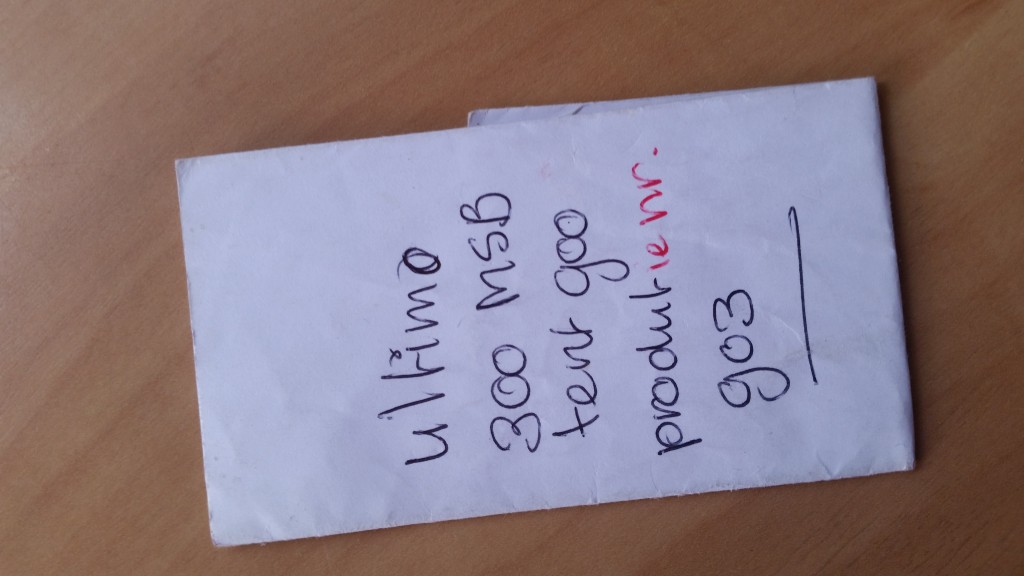 ultimo
300 MSB
tent 900
produktie nr.
903